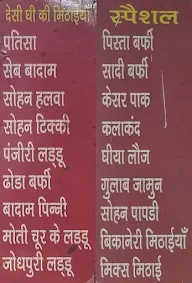 देसी घी की मिठाइयां
पतिसा
सेब बादाम
सोहन हलवा
सोहन टिक्की
पंजीरी लड्डू
ढोडा बर्फी
बादाम पिन्नी
मोती चूर के लड्डू
जोधपुरी लड्डू
स्पैशल
पिस्ता बर्फी
सादी बर्फी
केसर पाक
कलाकंद
घीया लौज
गुलाब जामुन
सोहन पापडी
बिकानेरी मिठाईयाँ
मिक्स मिठाई